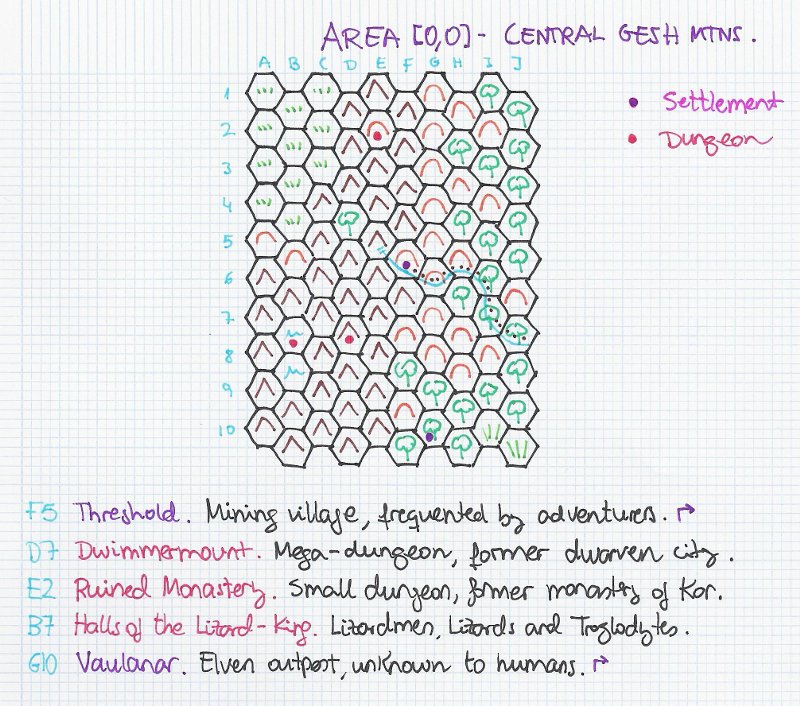 AREA [0,0] - CENTRAL GESH MTNS.
A B C D E F G H I J
Settlement
Dungeon
1
2
3
4
5
6
7
8
9
10
F5 Threshold. Mining village, frequented by adventurers.
D7 Dwimmermount. Mega-dungeon, former dwarven city.
E2 Ruined Monastery. Small dungeon, former monastery of Kor.
B7 Halls of the Lizard-King. Lizardmen, Lizards and Troglodytes.
G10 Vaulanar. Elven outpost, unknown to humans.